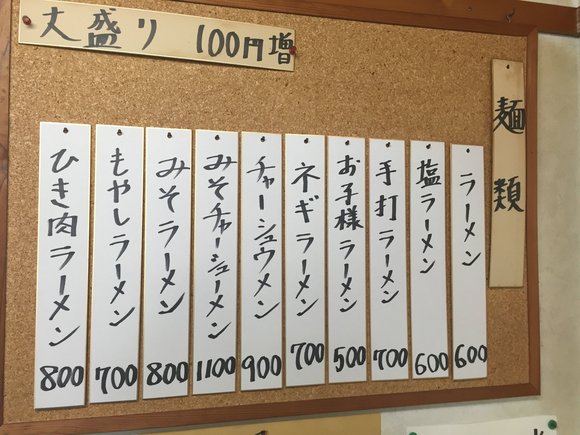 大盛り 100円増
麺類
ラーメン 600
塩ラーメン 600
手打ラーメン 700
お子様ラーメン 500
ネギラーメン 700
チャーシュウメン 900
みそチャーシューメン 1100
みそラーメン 800
もやしラーメン 700
ひき肉ラーメン 800